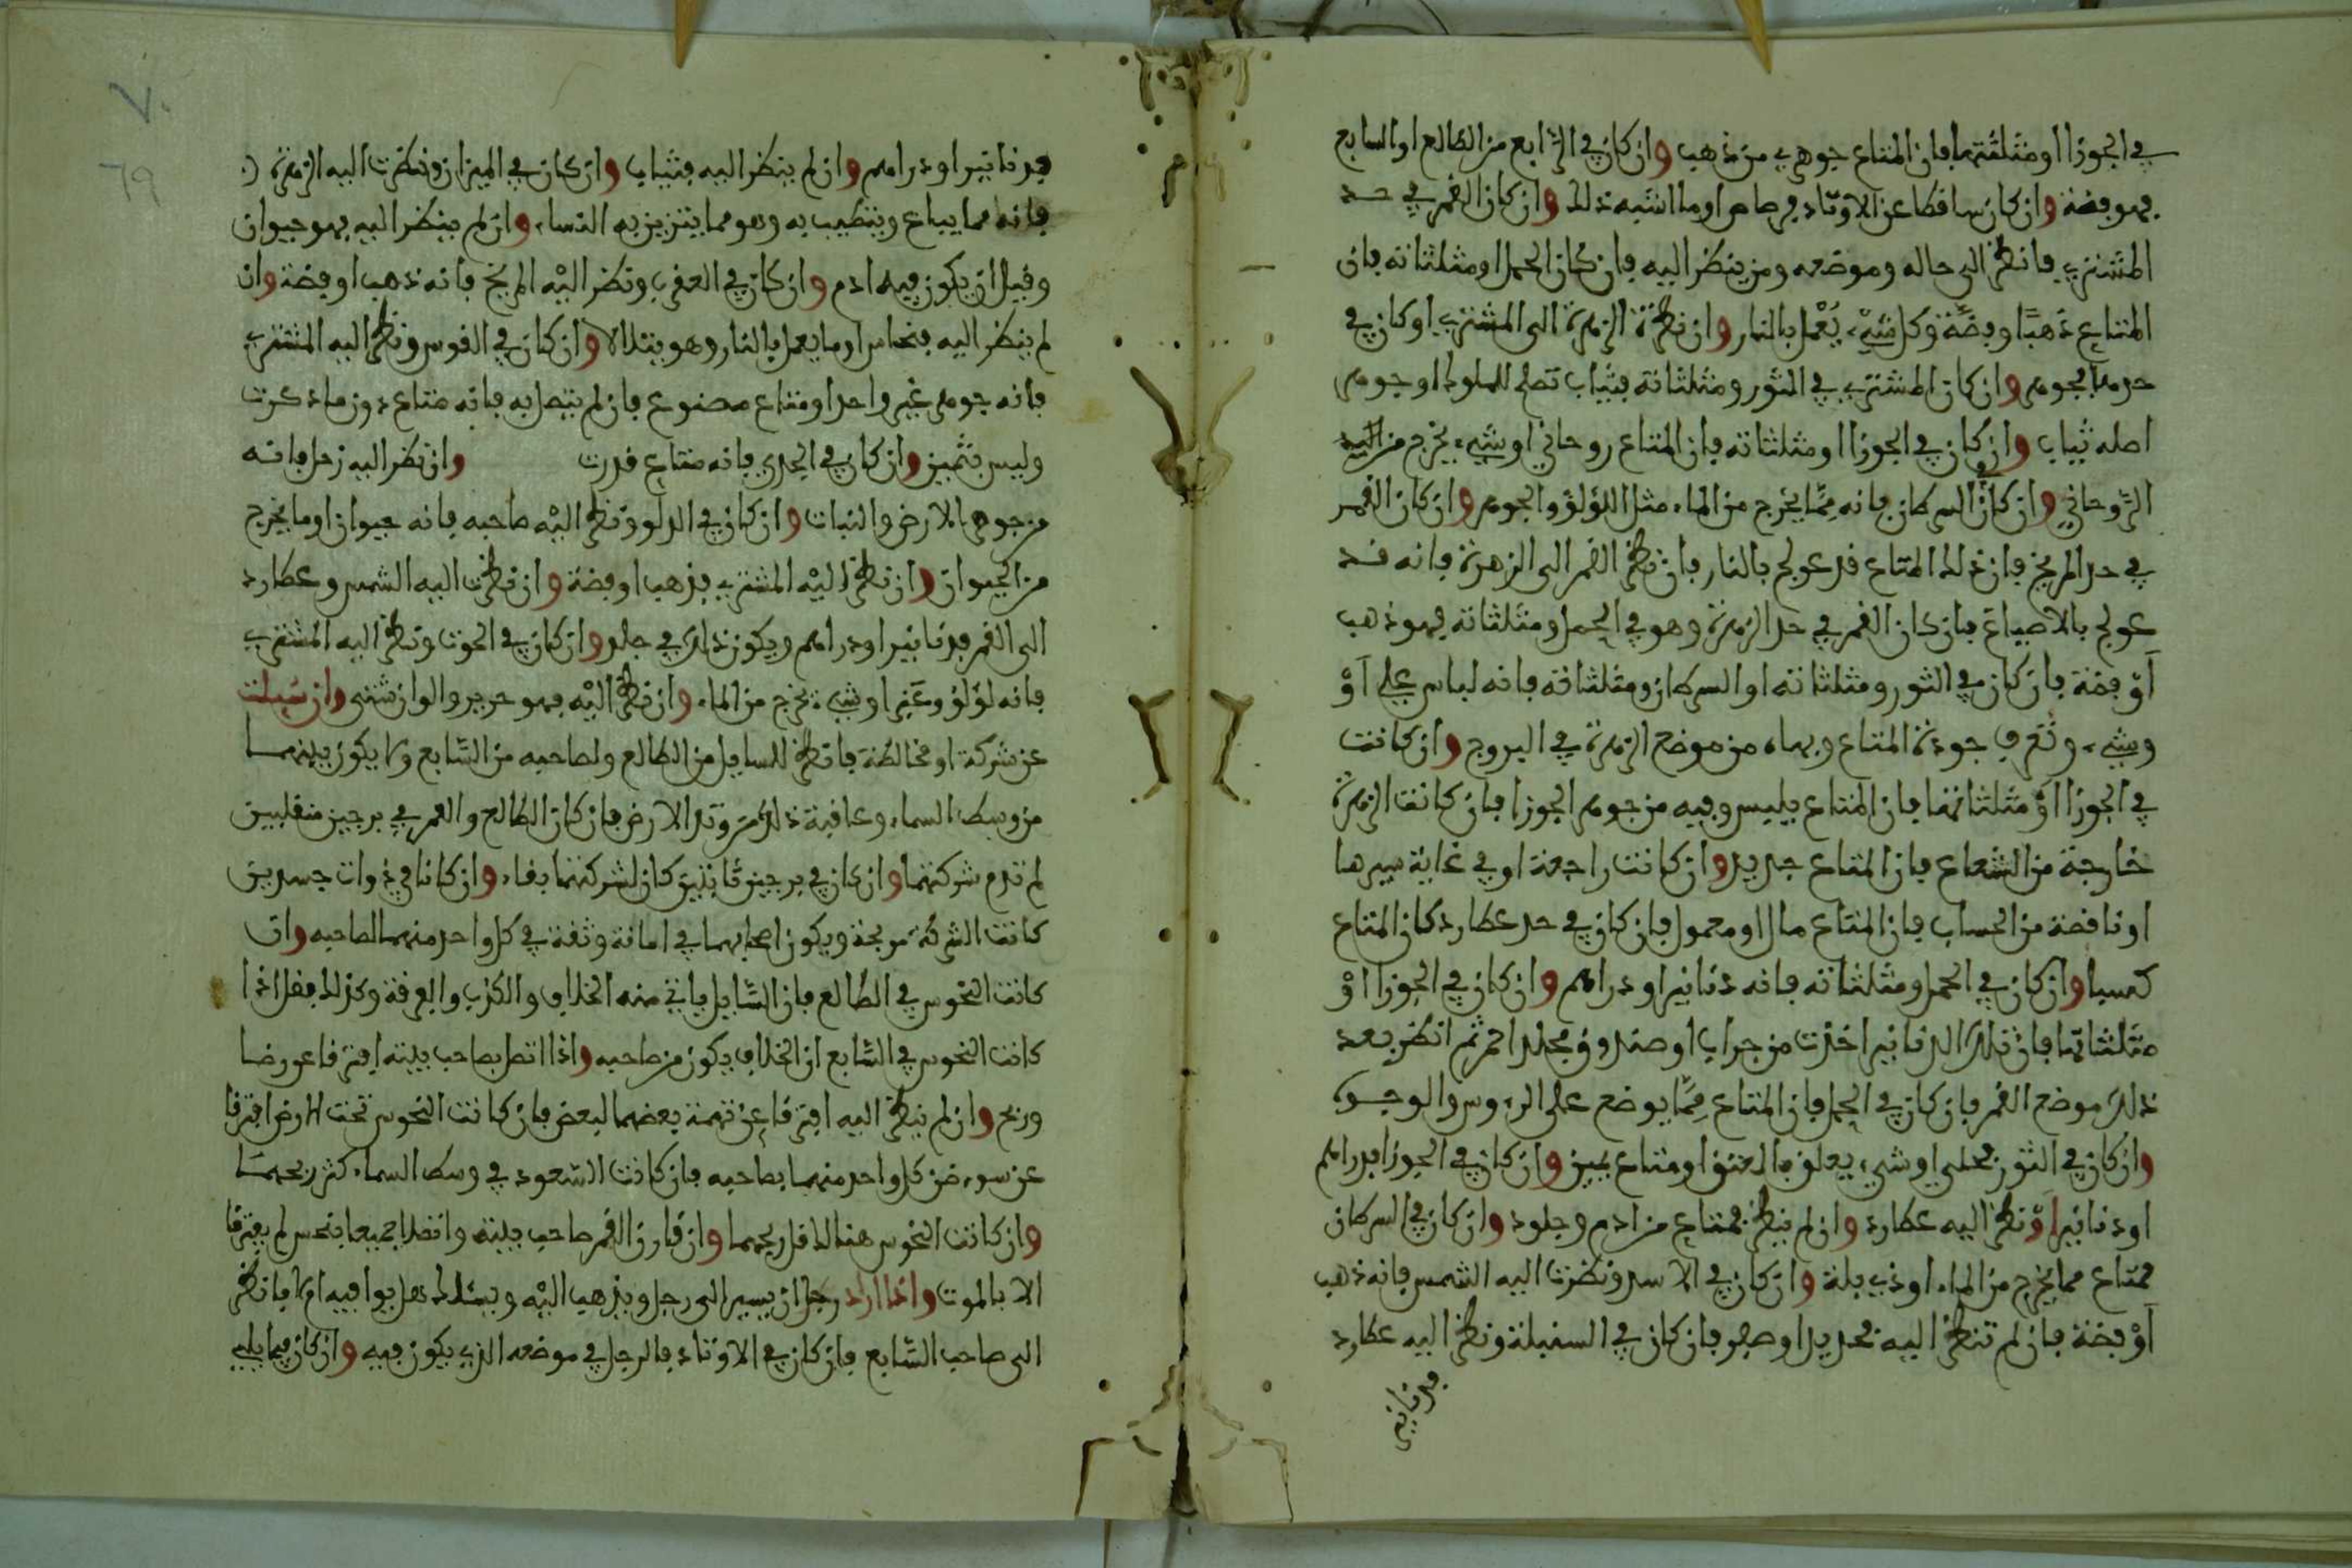 في الجوزا او مثلثتها فان المتاع جوهري من ذهب وان كان في الرابع من الطالع او السابع
فهو فضة وان كان ساقطا عن الاوتاد فرصاص او ما اشبه ذلك وان كان القمر في حد
المشتري فانظر الى حاله وموضعه ومن ينظر اليه فان كان الحمل او مثلثاته فان
المتاع ذهبا او فضة وكل شيء يعمل بالنار وان نظرة الزهرة الى المشتري او كان في
حدها بجوهر وان كان المشتري في الثور ومثلثاته فثياب تصلح للملوك او جوهر
اصله ثياب وان كان في الجوزا او مثلثاته فان المتاع روحاني او شيء يخرج من اليد
الروحاني وان كان في السرطان فانه مما يخرج من الماء مثل اللؤلؤ والجوهر وان كان القمر
في حد المريخ فان ذلك المتاع قد عولج بالنار فان نظر القمر الى الزهرة فانه قد
عولج بالاصباغ فان كان القمر في حد الزهرة وهو في الحمل ومثلثاته فهو ذهب
او فضة فان كان في الثور ومثلثاته او السرطان ومثلثاته فانه لباس علي او
وشيء وتعرف جودة المتاع وبهاه من موضع الزهرة في البروج وان كانت
في الجوزا او مثلثاتها فان المتاع يليس وفيه من جوهر الجوزا فان كانت الزهرة
خارجة من الشعاع فان المتاع جديد وان كانت راجعة او في غاية سيرها
او ناقصة من الحساب فان المتاع مال او معمول فان كان في حد عطارد كان المتاع
كسبا وان كان في الحمل ومثلثاته فانه دنانير او دراهم وان كان في الجوزا او
مثلثاتها فان تلك الدنانير اخذت من جراب او صندوق مجلد احمر ثم انظر بعد
ذلك موضع القمر فان كان في الحمل فان المتاع مما يوضع على الروس والوجوه
وان كان في الثور فحلي او شيء يعلق بالعنق او متاع بين وان كان في الجوزا فدراهم
او دنانير او نظر اليه عطارد وان لم ينظر فمتاع من ادم وجلود وان كان في السرطان
فمتاع مما يخرج من الماء او ذي بلة وان كان في الاسد ونظرت اليه الشمس فانه ذهب
او فضة فان لم تنظر اليه فحديد او صفر فان كان في السنبلة ونظر اليه عطارد
فدنانير
فدنانير او دراهم وان لم ينظر اليه فثياب وان كان في الميزان ونظرت اليه الزهرة
فانه مما يباع ويتطيب به وهو مما يتزين به النساء وان لم ينظر اليه فهو حيوان
وقيل ان يكون فيه ادم وان كان في العقرب ونظر اليه المريخ فانه ذهب او فضة وان
لم ينظر اليه فنحاس او ما يعمل بالنار وهو يتلالا وان كان في القوس ونظر اليه المشتري
فانه جوهر غير واحد او متاع مصنوع فان لم يتصل به فانه متاع دون ما ذكرت
وليس بثمين وان كان في الجدي فانه متاع قدرت وان نظر اليه زحل فانه
من جوهر الارض والنبات وان كان في الدلو ونظر اليه صاحبه فانه حيوان او ما يخرج
من الحيوان وان نظر اليه المشتري فذهب او فضة وان نظرت اليه الشمس وعطارد
الى القمر فدنانير او دراهم ويكون ذلك في جلد وان كان في الحوت ونظر اليه المشتري
فانه لؤلؤ وعنبر او شيء يخرج من الماء وان نظر اليه فهو حرير والوان شتى وان سيلت
عن شركة او مخالطة فانظر للسايل من الطالع ولصاحبه من السابع وما يكون بينهما
من وسط السماء وعاقبة ذلك من وتد الارض فان كان الطالع والقمر في برجين منقلبين
لم تدم شركتهما وان كان في برجين ثابتين كان لشركتهما بقاء وان كانا في ذوات جسدين
كانت الشركة مربحة ويكون اصحابهما في امانة وثقة في كل واحد منهما لصاحبه وان
كانت النحوس في الطالع فان السايل ياتي منه الخلاف والكذب والفرقة وكذلك فقل اذا
كانت النحوس في السابع ان الخلاف يكون من صاحبه واذا اتصل بصاحب بيته افترقا عن رضا
وربح وان لم ينظر اليه افترقا عن تهمة بعضهما لبعض فان كانت النحوس تحت الارض افترقا
عن سوء ظن كل واحد منهما بصاحبه فان كانت السعود في وسط السماء كثر ربحهما
وان كانت النحوس هنالك قل ربحهما وان قارن القمر صاحب بيته واتصلا جميعا بنحس لم يفترقا
الا بالموت واذا اراد رجل ان يسير الى رجل ويذهب اليه ويسئلك هل يوافيه ام لا فانظر
الى صاحب السابع فان كان في الاوتاد فالرجل في موضعه الذي يكون فيه وان كان فيما يلي